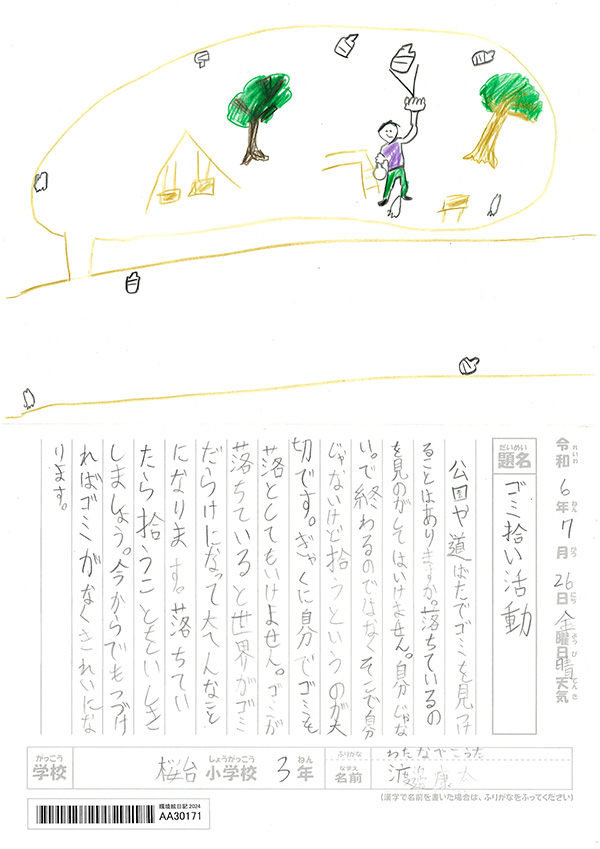 令和6年7月26日金曜日晴天気
れいわ ねん がつ にち ようび てんき
だいめい
題名
ゴミ拾い活動
公園や道ばたでゴミを見つけ
ることはありますか。落ちているの
を見のがしてはいけません。自分じゃな
い。で終わるのではなくそこで自分
じゃないけど拾うというのが大
切です。ぎゃくに自分でゴミを
落としてもいけません。ゴミが
落ちていると世界がゴミ
だらけになって大へんなこと
になります。落ちてい
たら拾うことをいしき
しましょう。今からでもつづけ
ればゴミがなくきれいにな
ります。
がっこう
学校
桜台小学校 3年
しょうがっこう ねん
ふりがな
わたなべこうた
なまえ
名前
渡邉康太
(漢字で名前を書いた場合は、ふりがなをふってください)
環境絵日記2024
AA30171